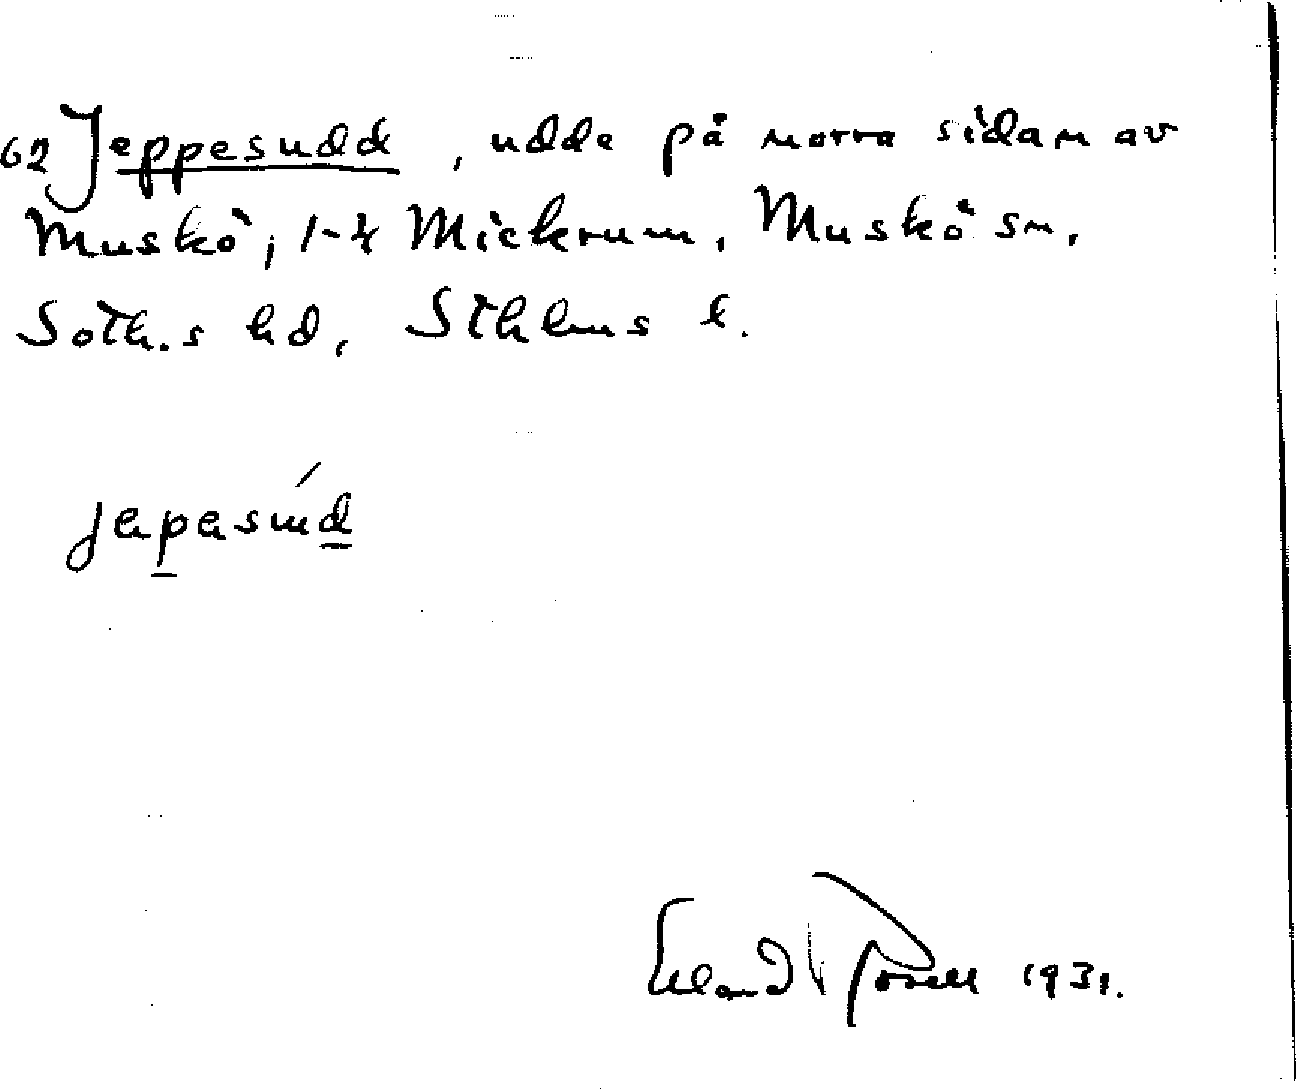 62 Jeppesudd, udde på norra sidan av
Muskö; 1-4 Mickrum, Muskö sn,
Soth.s hd, Sthlms l.
Erland Rosell 1931.